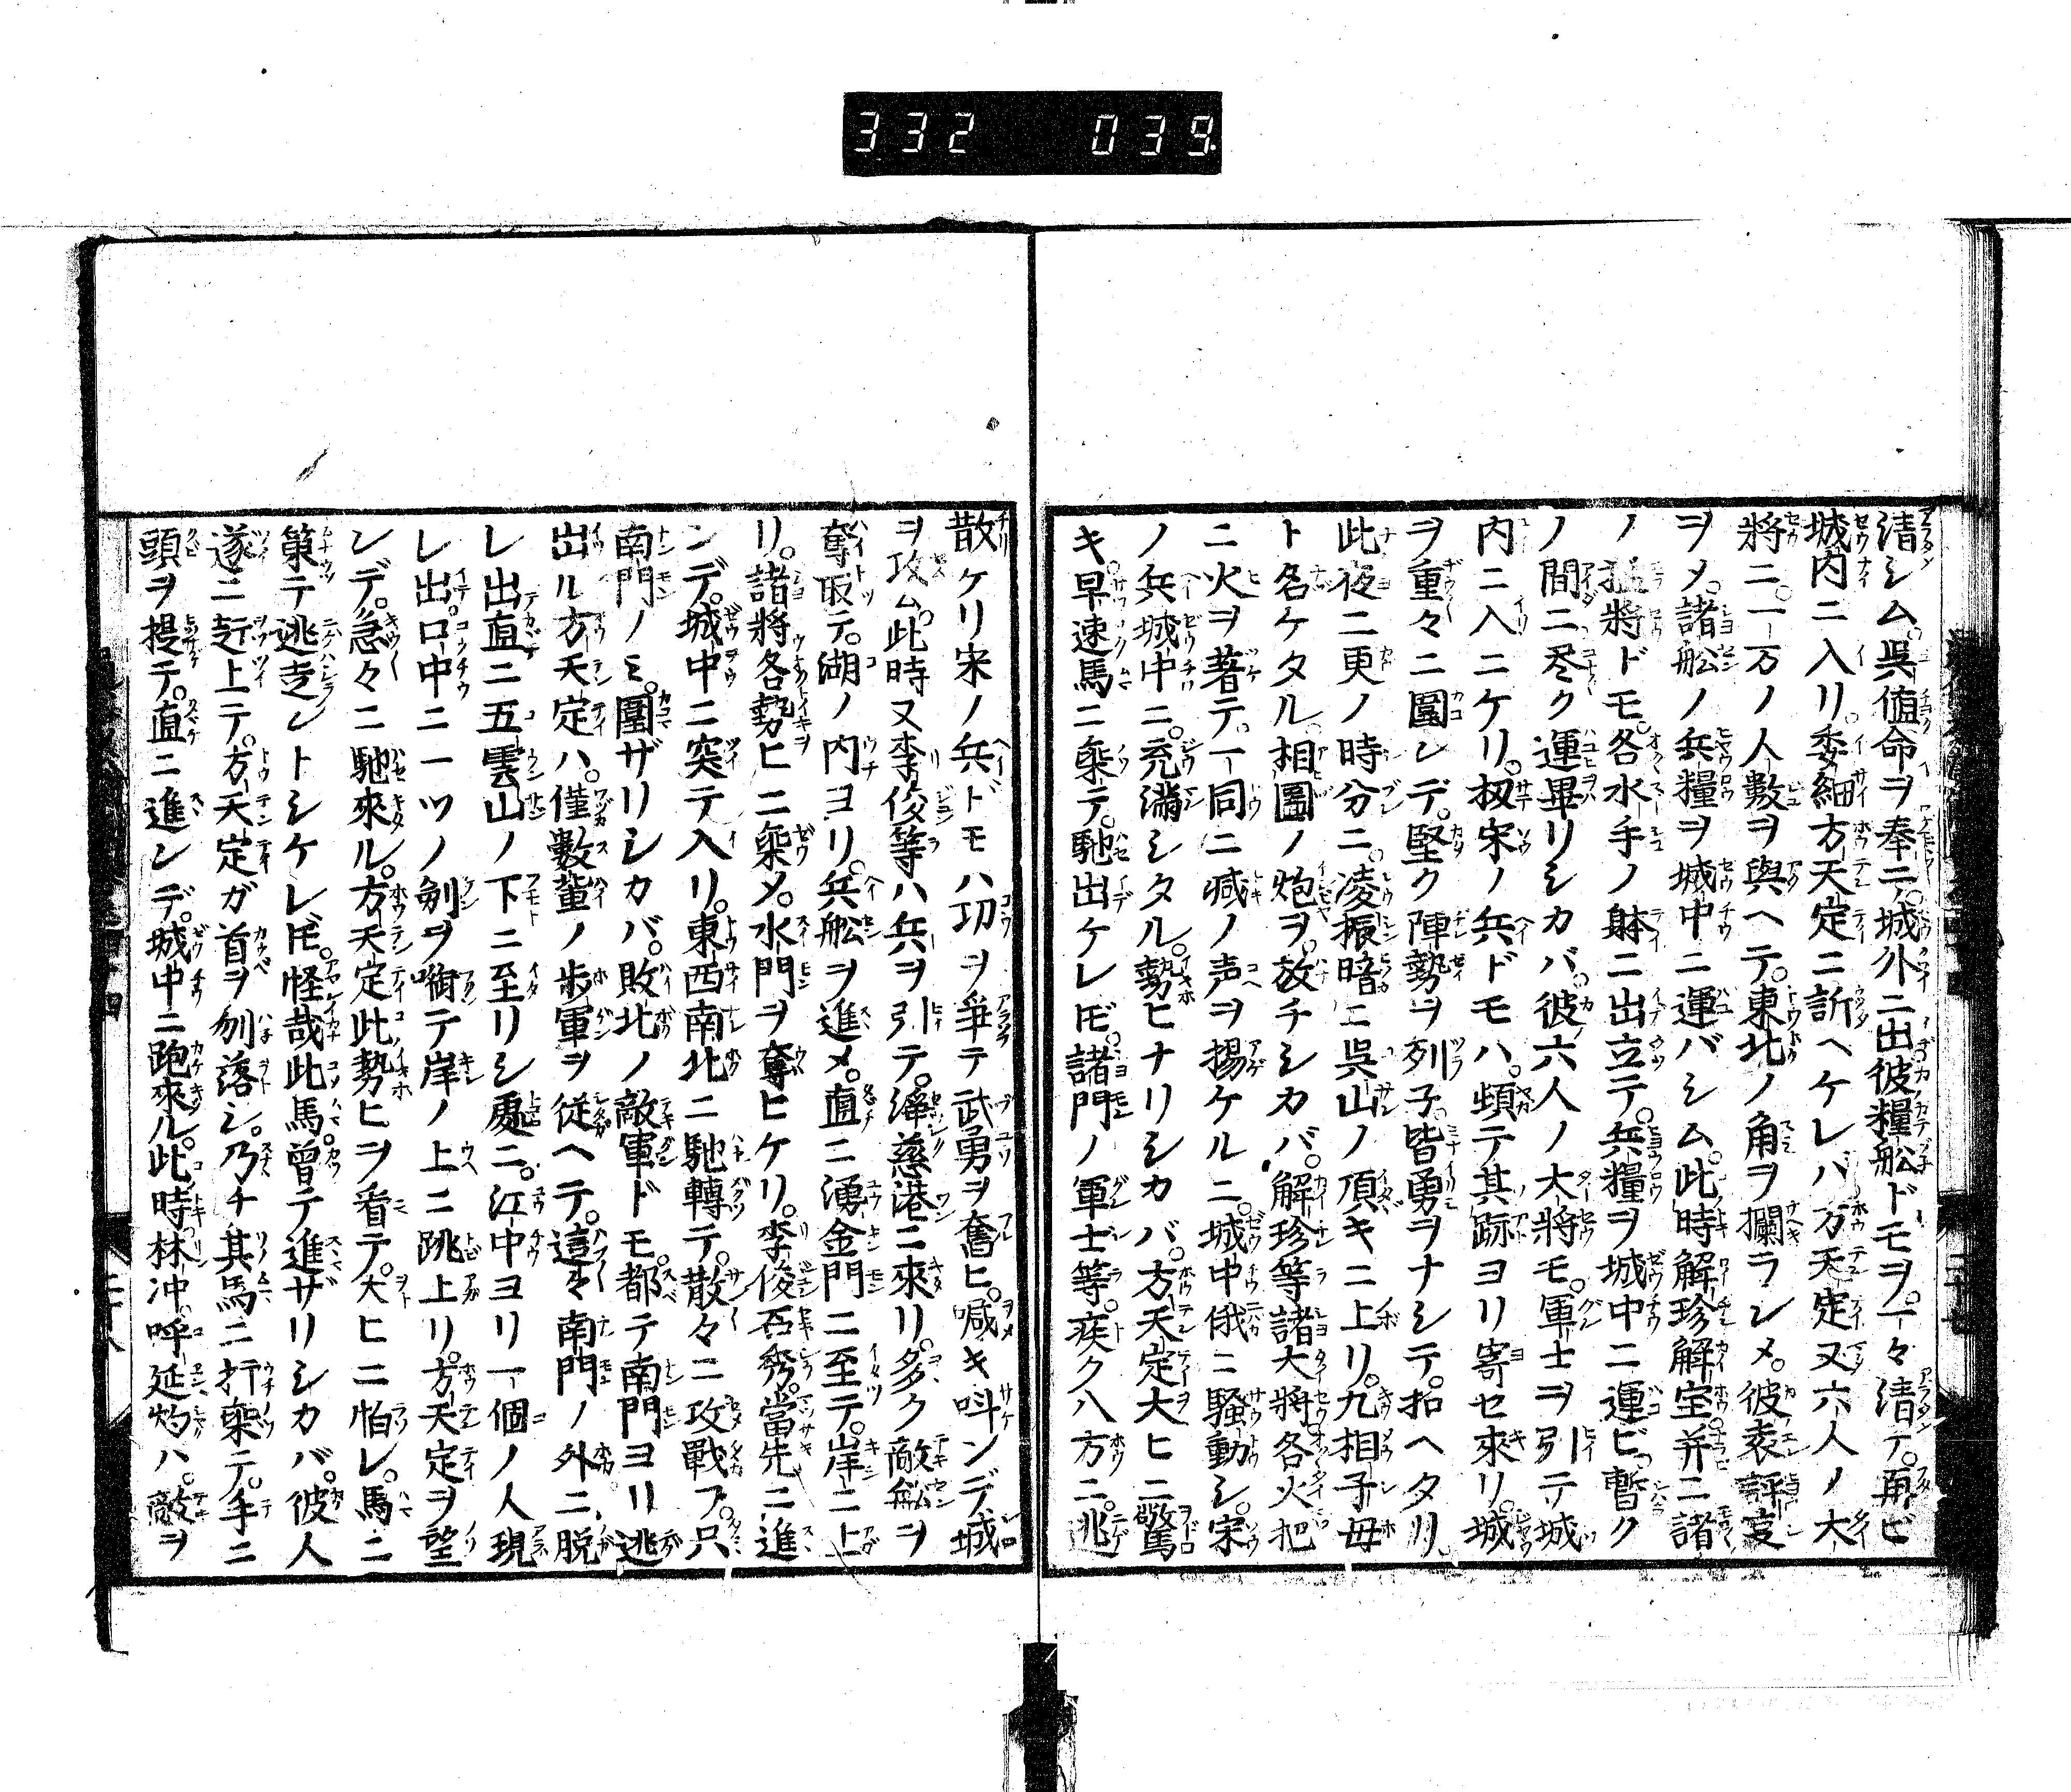 332 039
清シム。呉値命ヲ奉ニ。城外ニ出彼糧舩ドモヲ。一々清テ。再ビ
城内ニ入リ。委細方天定ニ訴ヘケレバ方天定又六人ノ大
將ニ。一万ノ人數ヲ與ヘテ。東北ノ角ヲ攔ラシメ。彼袁評事
ヲメ。諸舩ノ兵糧ヲ城中ニ運バシム。此時解珍解宝并ニ諸
ノ猛將ドモ。各水手ノ躰ニ出立テ。兵糧ヲ城中ニ運ビ。暫ク
ノ間ニ尽ク運畢リシカバ。彼六人ノ大將モ。軍士ヲ引テ城
内ニ入ニケリ。扨宋ノ兵ドモハ。頓テ其跡ヨリ寄セ來リ。城
ヲ重々ニ圍レデ。堅ク陣勢ヲ列子。皆勇ヲナシテ。扣ヘタリ。
此夜二更ノ時分ニ。凌振暗ニ呉山ノ頂キニ上リ。九相子母
ト名ケタル。相圖ノ炮ヲ。放チシカバ。解珍等諸大將各火把
ニ火ヲ著テ。一同ニ喊ノ声ヲ揚ケルニ。城中俄ニ騷動シ。宋
ノ兵城中ニ。充滿シタル。勢ヒナリシカバ。方天定大ヒニ驚
キ。早速馬ニ乗テ。馳出ケレ𪜈。諸門ノ軍士等。疾ク八方ニ。逃
散ケリ宋ノ兵ドモハ功ヲ爭テ武勇ヲ奮ヒ。喊キ呌ンデ。城
ヲ攻ム。此時又李俊等ハ兵ヲ引テ。淨慈港ニ來リ。多ク敵舩ヲ
奪取テ。湖ノ内ヨリ。兵舩ヲ進メ。直ニ湧金門ニ至テ。岸ニ上
リ。諸將各勢ヒニ乗メ。水門ヲ奪ヒケリ。李俊石秀。當先ニ進
ンデ。城中ニ突テ入リ。東西南北ニ馳轉テ。散々ニ攻戰フ。只
南門ノミ。圍ザリシカバ。敗北ノ敵軍ドモ。都テ南門ヨリ逃
出ル方天定ハ。僅數輩ノ歩軍ヲ從ヘテ。這々南門ノ外ニ脱
レ出直ニ五雲山ノ下ニ至リシ處ニ。江中ヨリ一個ノ人現
レ出。口中ニ一ツノ刽ヲ啣テ岸ノ上ニ跳上リ。方天定ヲ望
ンデ。急々ニ馳來ル。方天定此勢ヒヲ看テ。大ヒニ怕レ。馬ニ
策テ逃走レトシケレ𪜈。怪哉此馬曾テ進ザリシカバ。彼人
遂ニ赶上テ。方天定ガ首ヲ刎落シ。乃チ其馬ニ打乗テ。手ニ
頭ヲ提テ。直ニ進ンデ。城中ニ跑來ル。此時林冲呼延灼ハ。敵ヲ